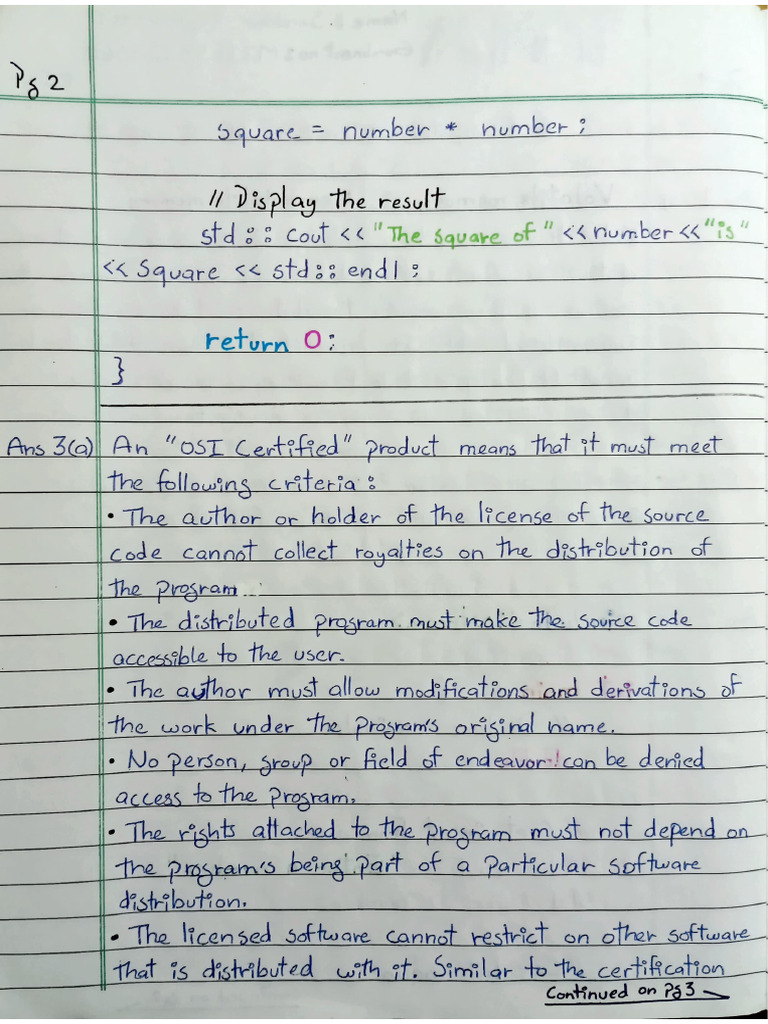 Pg 2
square = number * number ;
// Display the result
std :: cout << "The square of " << number << "is"
<< Square << std :: endl ;
return 0 ;
}
Ans 3(a) An "OSI Certified" product means that it must meet
the following criteria :
• The author or holder of the license of the source
code cannot collect royalties on the distribution of
the program.
• The distributed program must make the source code
accessible to the user.
• The author must allow modifications and derivations of
the work under the program's original name.
• No person, group or field of endeavor can be denied
access to the program.
• The rights attached to the program must not depend on
the program's being part of a particular software
distribution.
• The licensed software cannot restrict on other software
that is distributed with it. Similar to the certification
Continued on Pg 3